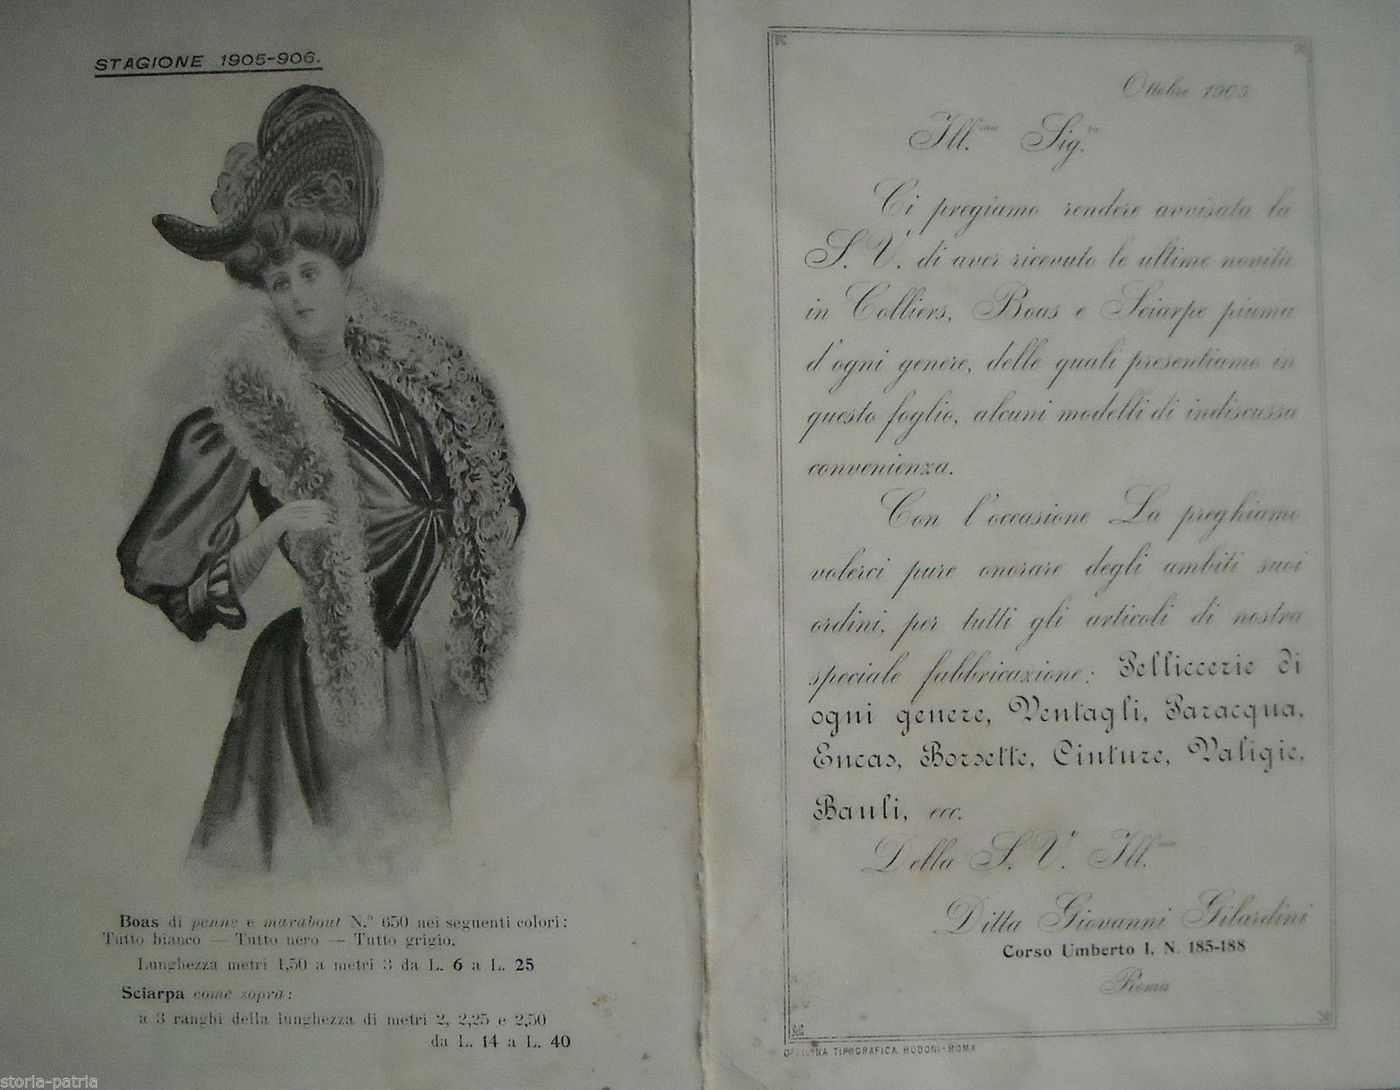 STAGIONE 1905-906.
Boas di penne e marabout N.° 650 nei seguenti colori:
Tutto bianco — Tutto nero — Tutto grigio.
Lunghezza metri 1,50 a metri 3 da L. 6 a L. 25
Sciarpa come sopra:
a 3 ranghi della lunghezza di metri 2, 2,25 e 2,50
da L. 14 a L. 40
storia-patria
Ottobre 1905
Ill.ma Sig.ra
Ci pregiamo rendere avvisata la
S. V. di aver ricevuto le ultime novità
in Colliers, Boas e Sciarpe piuma
d'ogni genere, delle quali presentiamo in
questo foglio, alcuni modelli di indiscussa
convenienza.
Con l'occasione La preghiamo
volerci pure onorare degli ambiti suoi
ordini, per tutti gli articoli di nostra
speciale fabbricazione: Pelliccerie di
ogni genere, Ventagli, Paracqua,
Encas, Borsette, Cinture, Valigie,
Bauli, ecc.
Della S. V. Ill.ma
Ditta Giovanni Gilardini
Corso Umberto I, N. 185-188
Roma
OFFICINA TIPOGRAFICA BODONI-ROMA